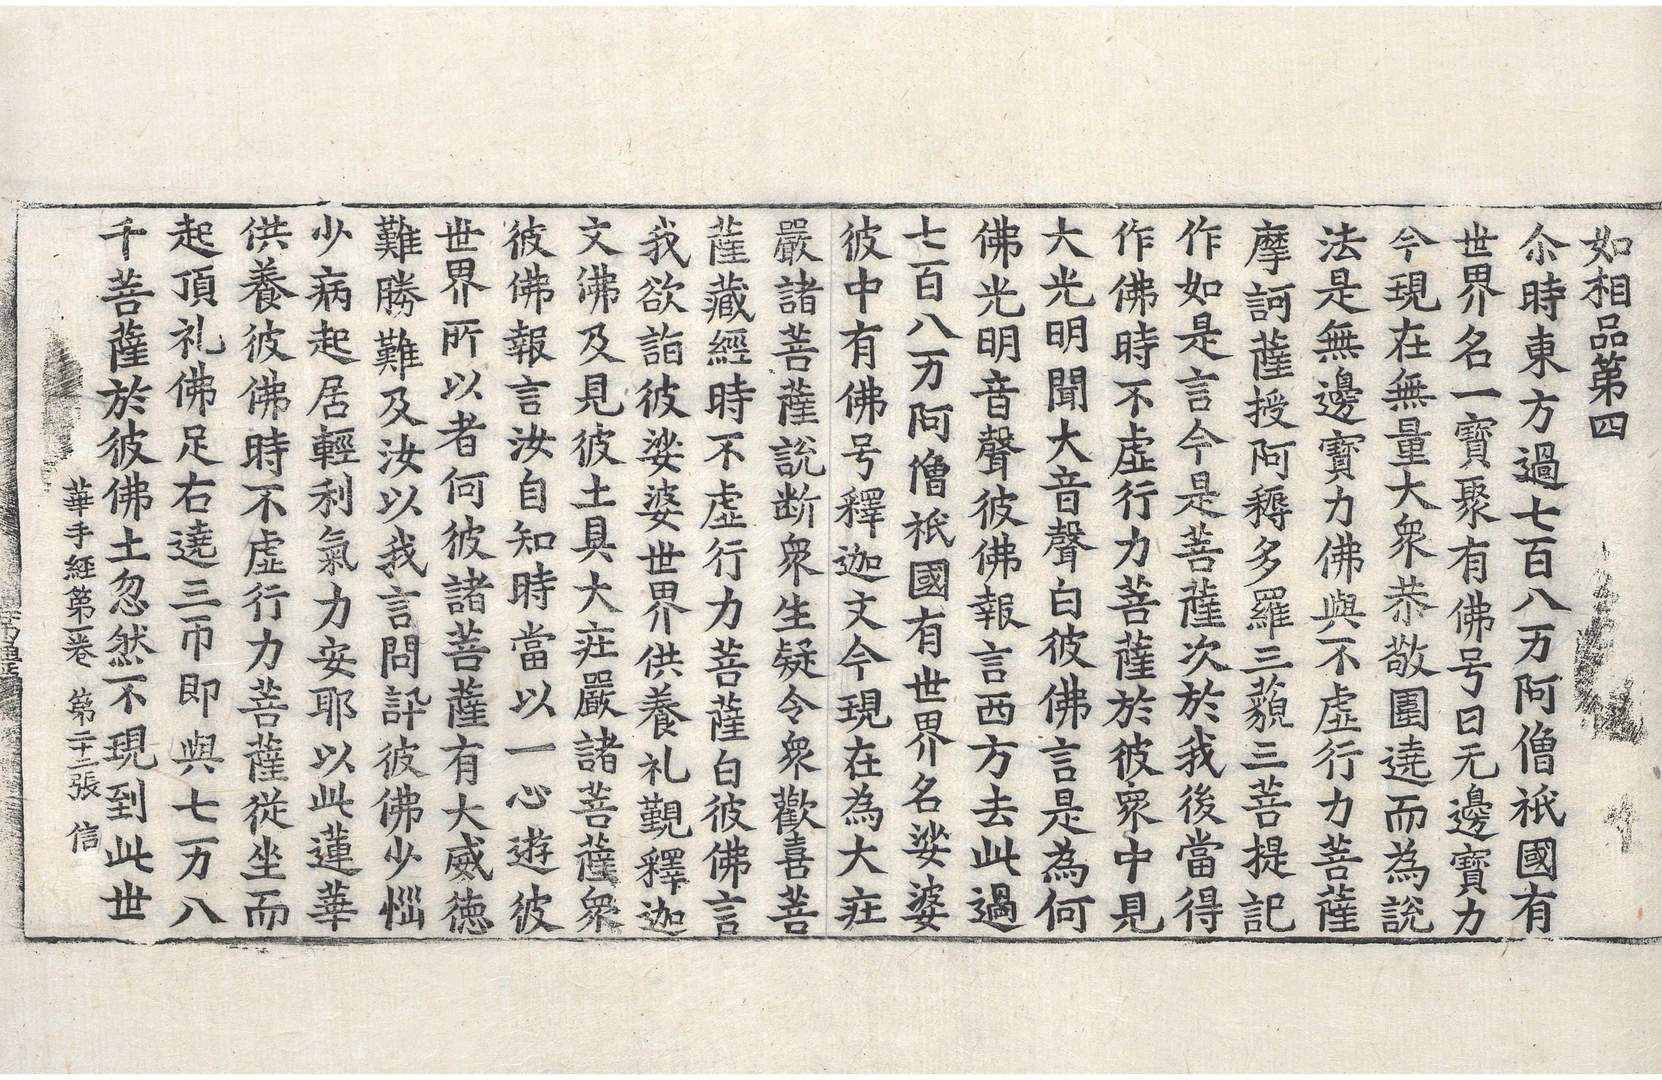 如相品第四
尒時東方過七百八万阿僧祇國有
世界名一寶聚有佛号曰无邊寶力
今現在無量大衆恭敬圍遶而為說
法是無邊寶力佛與不虛行力菩薩
摩訶薩授阿耨多羅三藐三菩提記
作如是言今是菩薩次於我後當得
作佛時不虛行力菩薩於彼衆中見
大光明聞大音聲白彼佛言是為何
佛光明音聲彼佛報言西方去此過
七百八万阿僧祇國有世界名娑婆
彼中有佛号釋迦文今現在為大疘
嚴諸菩薩說断衆生疑令衆歡喜菩
薩藏經時不虛行力菩薩白彼佛言
我欲詣彼娑婆世界供養礼覲釋迦
文佛及見彼土具大疘嚴諸菩薩衆
彼佛報言汝自知時當以一心遊彼
世界所以者何彼諸菩薩有大威徳
難勝難及汝以我言問訊彼佛少惱
少病起居輕利氣力安耶以此蓮華
供養彼佛時不虛行力菩薩従坐而
起頂礼佛足右遶三帀即與七万八
千菩薩於彼佛土忽然不現到此世
華手經第一卷 第二十二張 信